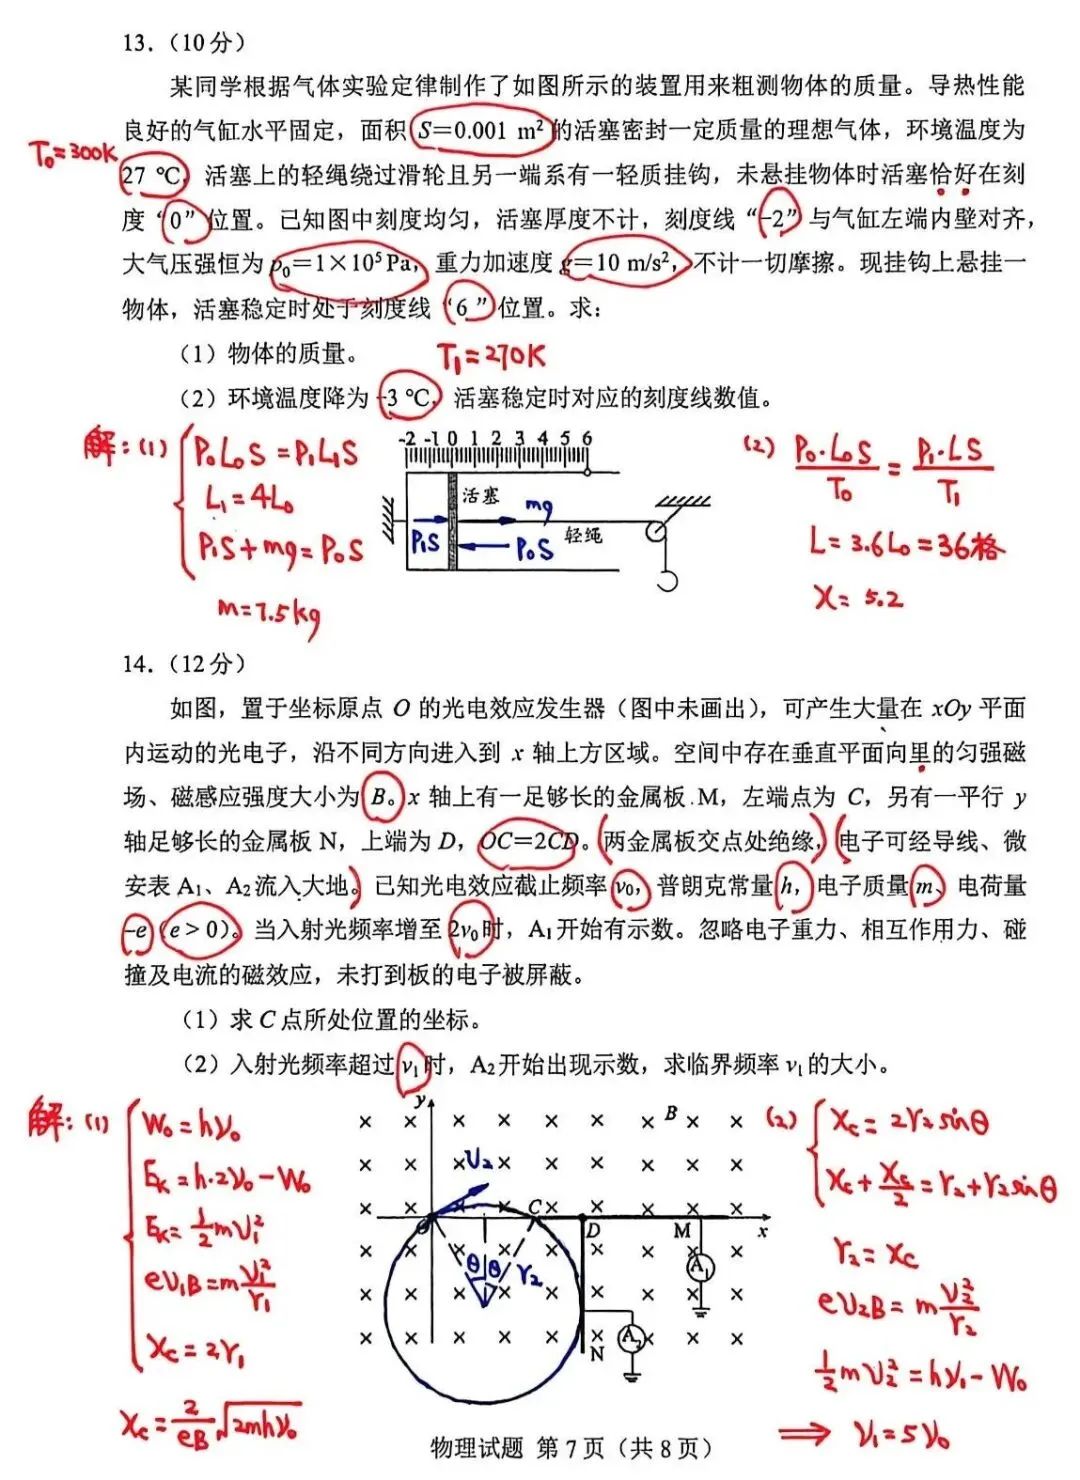 13.（10分）
某同学根据气体实验定律制作了如图所示的装置用来粗测物体的质量。导热性能
良好的气缸水平固定，面积S=0.001 m²的活塞密封一定质量的理想气体，环境温度为
T₀=300K
27 ℃，活塞上的轻绳绕过滑轮且另一端系有一轻质挂钩，未悬挂物体时活塞恰好在刻
度“0”位置。已知图中刻度均匀，活塞厚度不计，刻度线“-2”与气缸左端内壁对齐，
大气压强恒为p₀=1×10⁵Pa，重力加速度g=10 m/s²，不计一切摩擦。现挂钩上悬挂一
物体，活塞稳定时处于刻度线“6”位置。求：
（1）物体的质量。
T₁=270K
（2）环境温度降为-3 ℃，活塞稳定时对应的刻度线数值。
解：(1)
P₀L₀S=P₁L₁S
L₁=4L₀
P₁S+mg=P₀S
m=7.5kg
-2 -1 0 1 2 3 4 5 6
活塞
mg
P₁S
P₀S
轻绳
(2) P₀·L₀S/T₀ = P₁·LS/T₁
L=3.6L₀=36格
X=5.2
14.（12分）
如图，置于坐标原点 O 的光电效应发生器（图中未画出），可产生大量在 xOy 平面
内运动的光电子，沿不同方向进入到 x 轴上方区域。空间中存在垂直平面向里的匀强磁
场、磁感应强度大小为 B。x 轴上有一足够长的金属板 M，左端点为 C，另有一平行 y
轴足够长的金属板 N，上端为 D，OC=2CD。两金属板交点处绝缘，电子可经导线、微
安表 A₁、A₂流入大地。已知光电效应截止频率ν₀，普朗克常量h，电子质量m、电荷量
-e（e＞0）。当入射光频率增至2ν₀时，A₁开始有示数。忽略电子重力、相互作用力、碰
撞及电流的磁效应，未打到板的电子被屏蔽。
（1）求 C 点所处位置的坐标。
（2）入射光频率超过ν₁时，A₂开始出现示数，求临界频率ν₁的大小。
解：(1)
W₀=hν₀
Eₖ=h·2ν₀-W₀
Eₖ=½mv₁²
ev₁B=m v₁²/r₁
X_C=2r₁
X_C=2/(eB)√(2mhν₀)
y
B
v₂
O
C
D
M
x
θ
θ
r₂
A₁
A₂
N
(2)
X_C=2r₂sinθ
X_C+X_C/2=r₂+r₂sinθ
r₂=X_C
ev₂B=m v₂²/r₂
½mv₂²=hν₁-W₀
⟹ ν₁=5ν₀
物理试题 第7页（共8页）